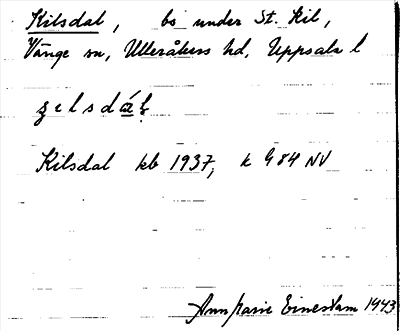 Kilsdal, bs under St. Kil,
Vänge sn, Ulleråkers hd, Uppsala l
Kilsdal kb 1937, k G 84 NV
Ann Marie Einestam 1943